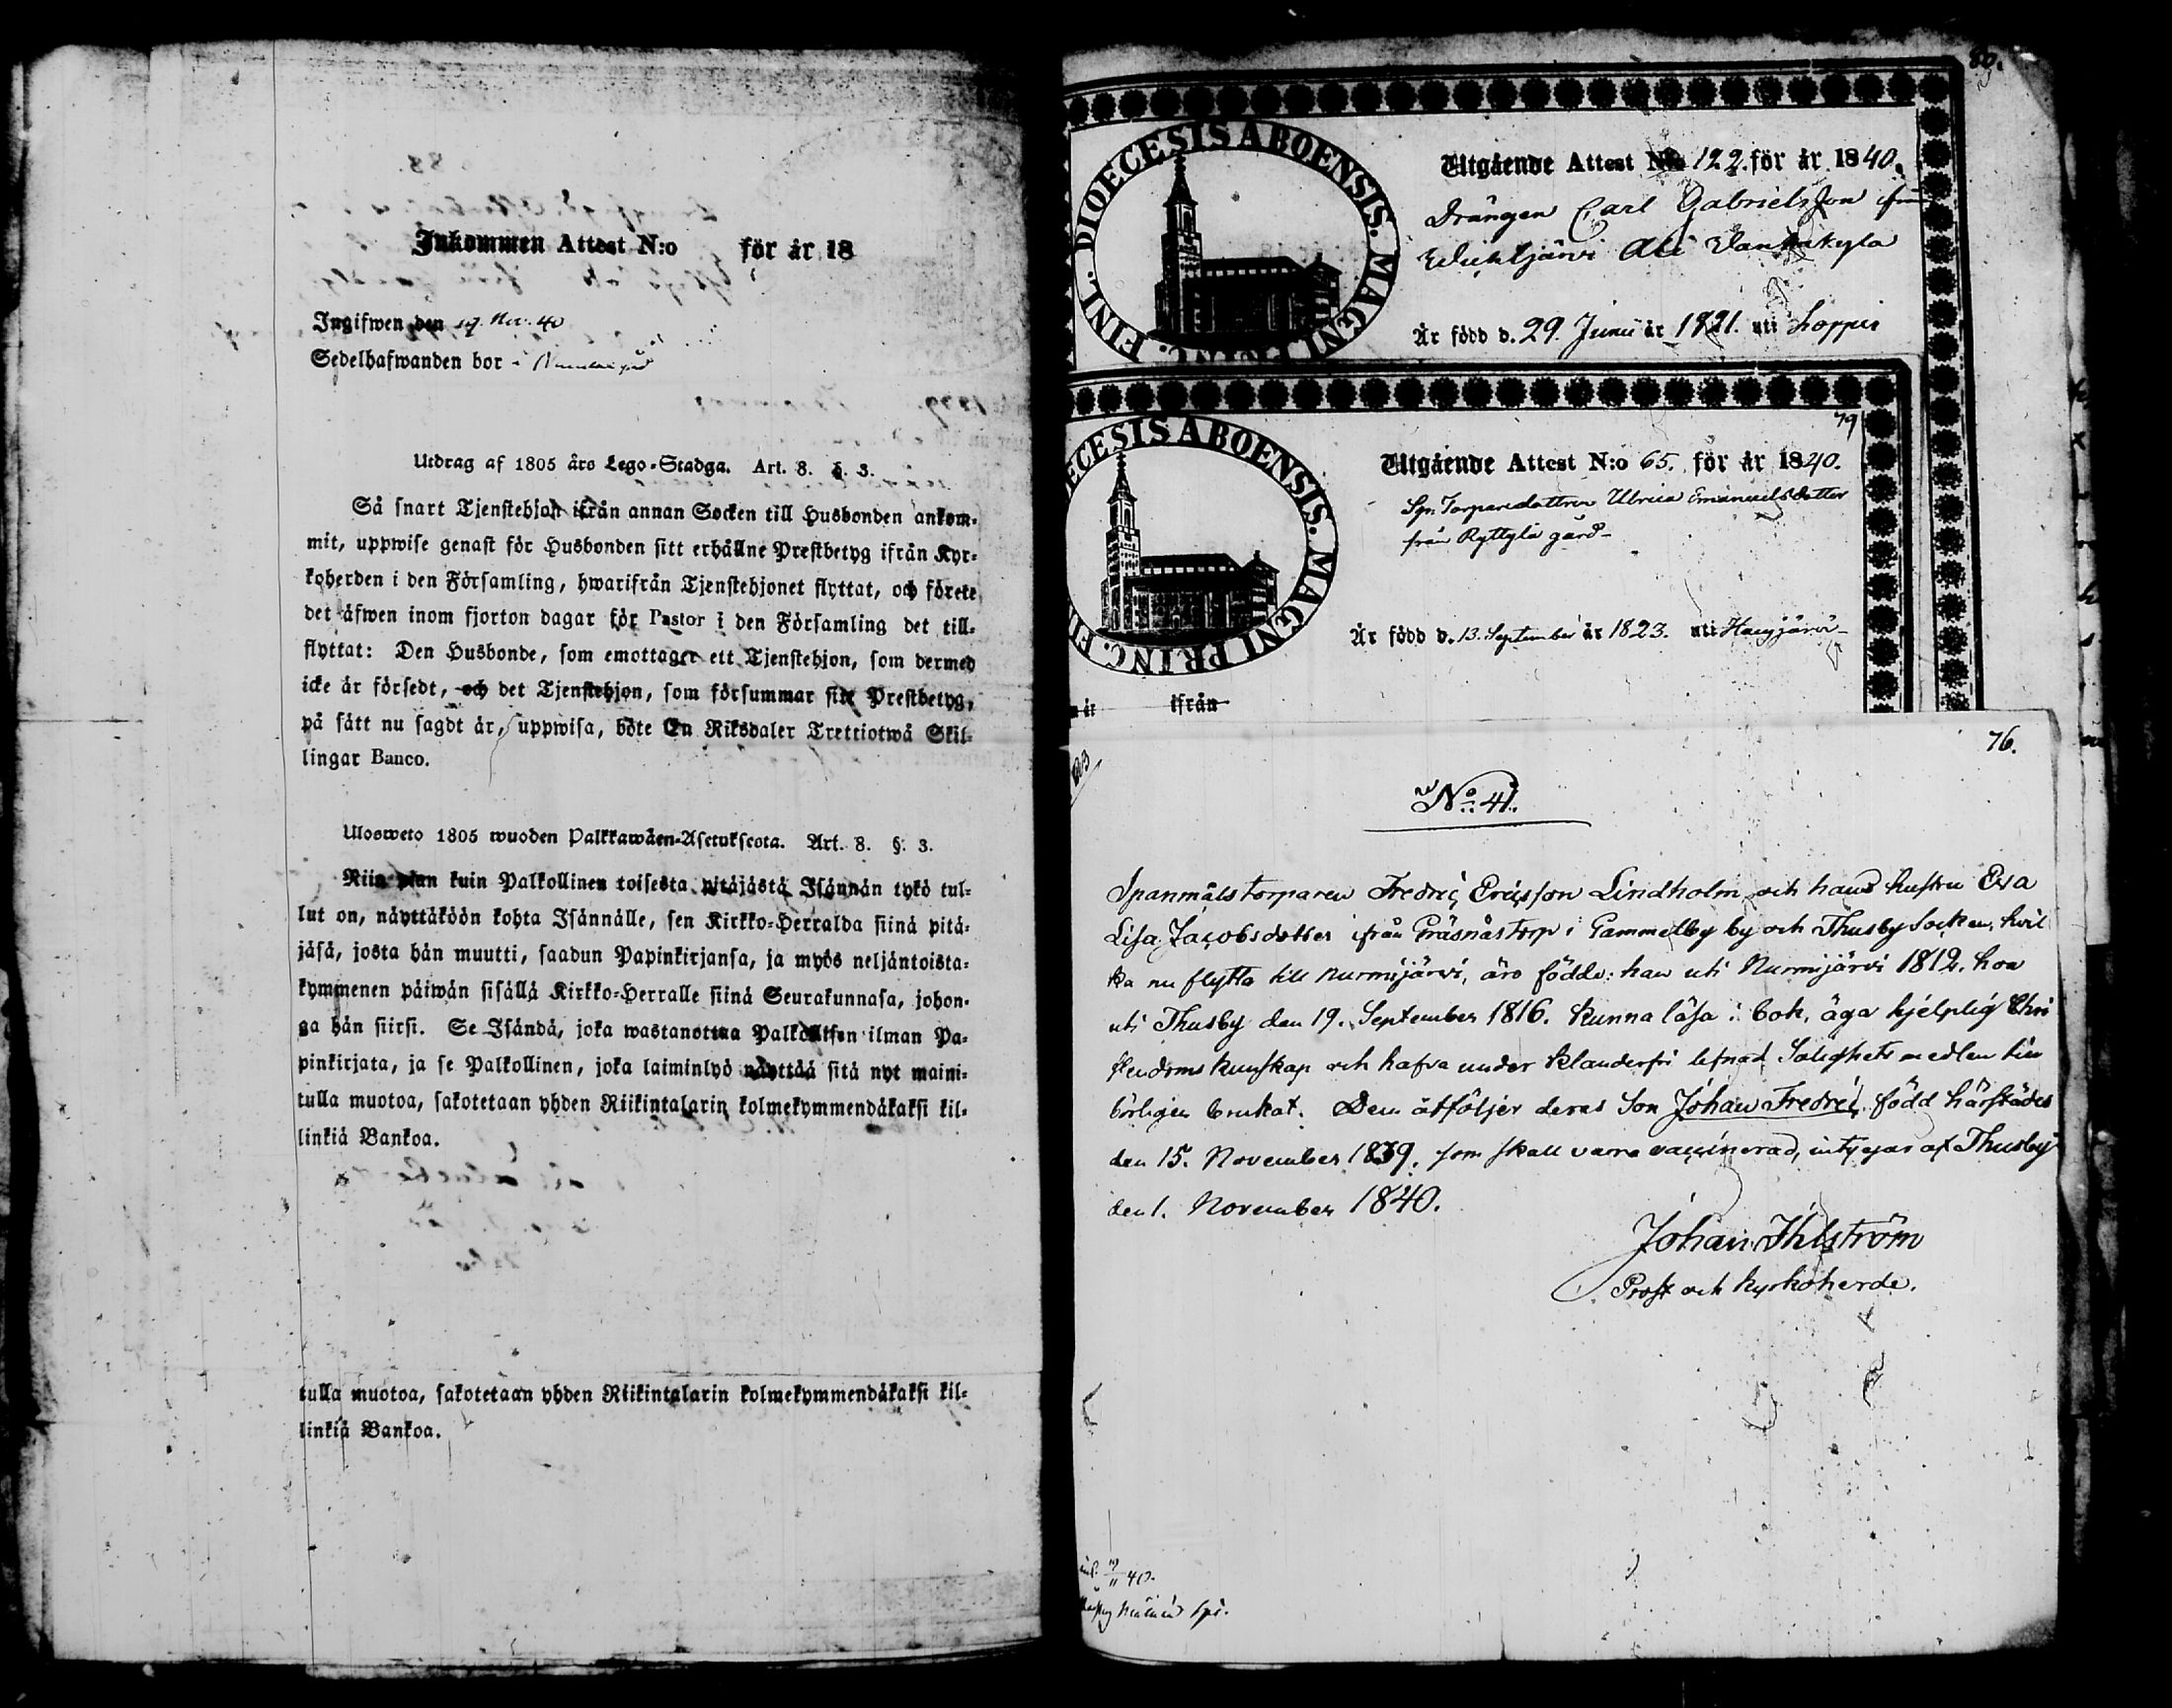 Inkommen Attest N:o för år 18
Ingifwen den 19. Nov. 40
Sedelhafwanden bor i
Utdrag af 1805 års Lego-Stadga. Art. 8. §. 3.
Så snart Tjenstehjon ifrån annan Socken till Husbonden ankom-
mit, uppwise genast för Husbonden sitt erhållne Prestbetyg ifrån Kyr-
koherden i den Församling, hwarifrån Tjenstehjonet flyttat, och förete
det äfwen inom fjorton dagar för Pastor i den Församling det till-
flyttat: Den Husbonde, som emottager ett Tjenstehjon, som dermed
icke är försedt, och det Tjenstehjon, som försummar sitt Prestbetyg,
på sätt nu sagdt är, uppwisa, böte En Riksdaler Trettiotwå Skil-
lingar Banco.
Ulosweto 1805 wuoden Palkkawäen-Asetuksesta. Art. 8. §. 3.
Niin pian kuin Palkollinen toisesta pitäjästä Isännän tykö tul-
lut on, näyttäköön kohta Isännälle, sen Kirkko-Herralda siinä pitä-
jäsä, josta hän muutti, saadun Papinkirjansa, ja myös neljäntoista-
kymmenen päiwän sisällä Kirkko-Herralle siinä Seurakunnasa, johon-
ga hän siirsi. Se Isändä, joka wastanottaa Palkollisen ilman Pa-
pinkirjata, ja se Palkollinen, joka laiminlyö näyttää sitä nyt maini-
tulla muotoa, sakotetaan yhden Riikintalarin kolmekymmendäkaksi kil-
linkiä Bankoa.
tulla muotoa, sakotetaan yhden Riikintalarin kolmekymmendäkaksi kil-
linkiä Bankoa.
80.
DIOECESIS ABOENSIS. MAGNI PRINC. FINL.
Utgående Attest N:o 122. för år 1840.
Drängen Carl Gabrielsson ifrån
Wichtjärvi Ali Vanhakyla
Är född d. 29. Junii år 1821. uti Loppis
79
ECESIS ABOENSIS. MAGNI PRINC. FI
Utgående Attest N:o 65. för år 1840.
Sp. Torparedottren Ulrica Emanuelsdotter
från Ryttylä gård
Är född d. 13. September år 1823. uti Hausjärvi
ifrån
76.
No 41.
Spanmålstorparen Fredric Ericsson Lindholm och hans hustru Eva
Lisa Jacobsdotter ifrån Gräsnäs torp i Gammelby by och Thusby Socken, hvil
ka nu flytta till Nurmijärvi, äro födde: han uti Nurmijärvi 1812. hon
uti Thusby den 19. September 1816. Kunna läsa i bok, äga hjelplig Chri
stendoms kunskap och hafva under klanderfri lefnad Salighets medlen tillbörligen
börligen brukat. Dem åtföljer deras Son Johan Fredric, född härstädes
den 15. November 1839. som skall vara vaccinerad, intygar af Thusby
den 1. November 1840.
Johan Ihlström
Prost och kyrkoherde.